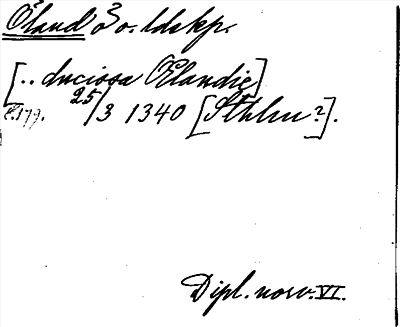 Öland ö o. ldskp.
[.. ducissa Ølandie]
s.179. 25/3 1340 [Sthlm?].
Dipl. norv. VI.